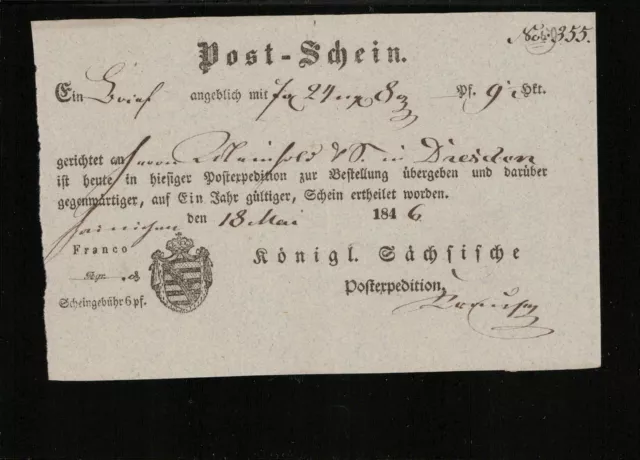 No. 355.
Post-Schein.
Ein Brief angeblich mit 7 24 ngr 8 Pf. 9 Lkt.
gerichtet an Herrn C Meinhold & S. in Dresden
ist heute in hiesiger Postexpedition zur Bestellung übergeben und darüber
gegenwärtiger, auf Ein Jahr gültiger, Schein ertheilet worden.
Hainichen den 18 Mai 1846
Franco
Ngr.
Scheingebühr 6 pf.
Königl. Sächsische
Postexpedition.